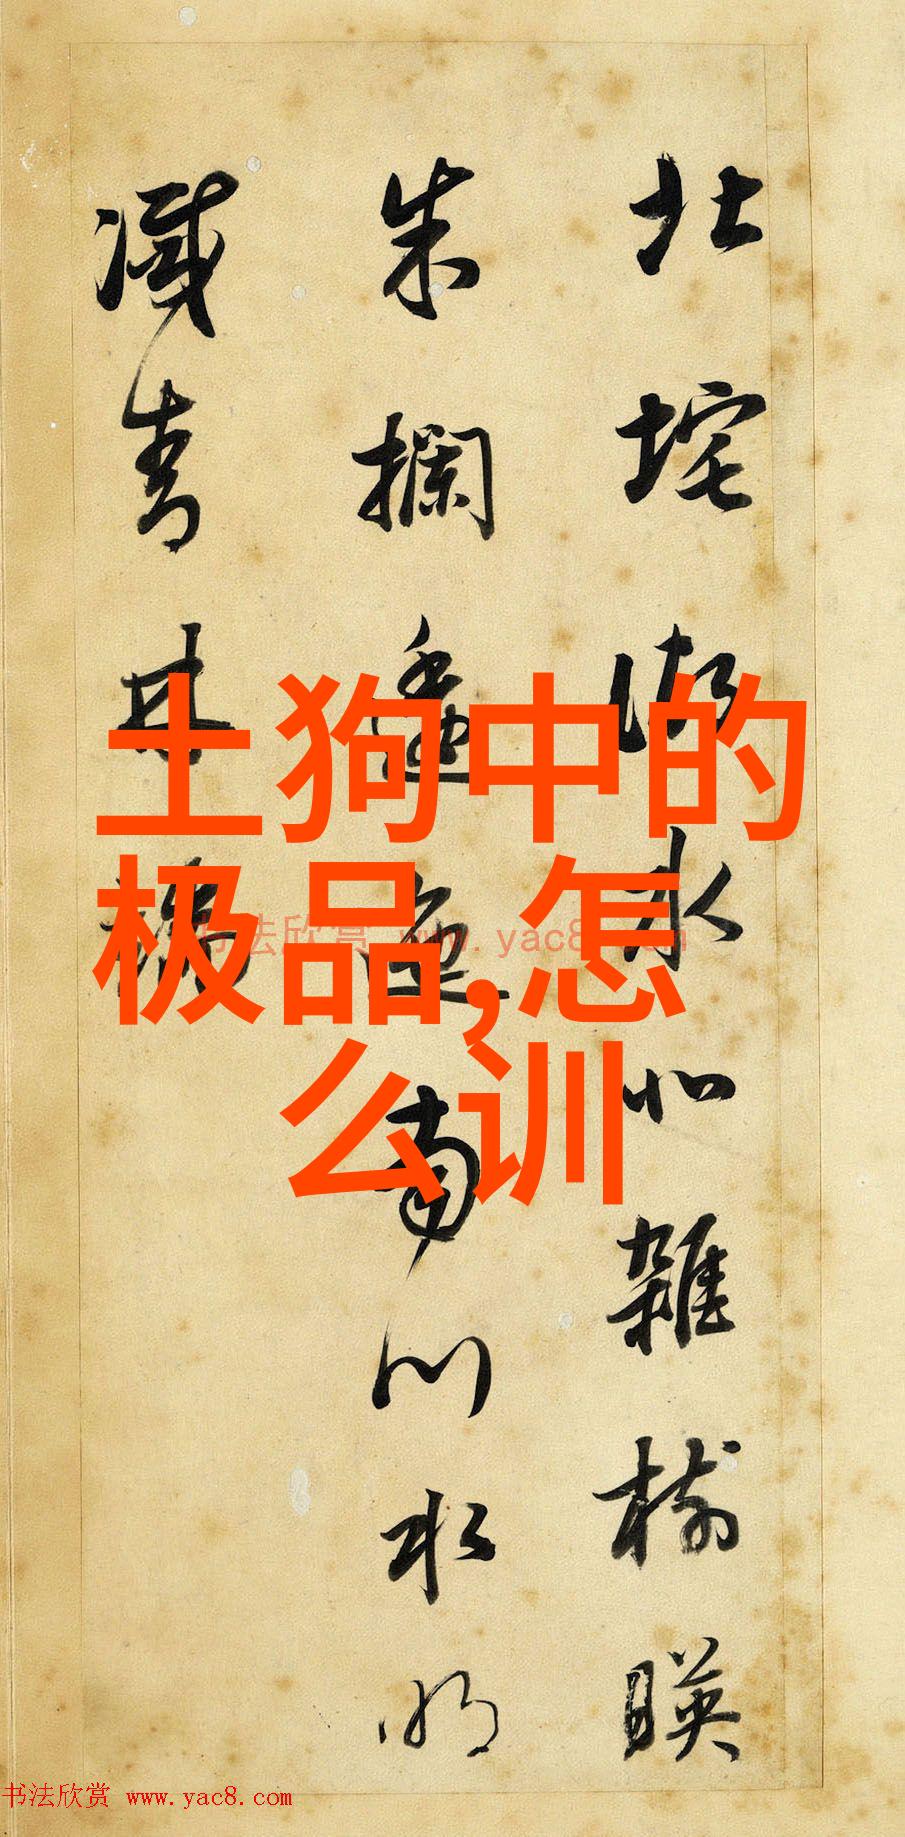 北垞湖水北雜樹暎
朱欄逶迤南川水明
滅青林端
土狗中的
极品,怎
么训
书法欣赏 www.yac8.com
书法欣赏 www.yac8.com